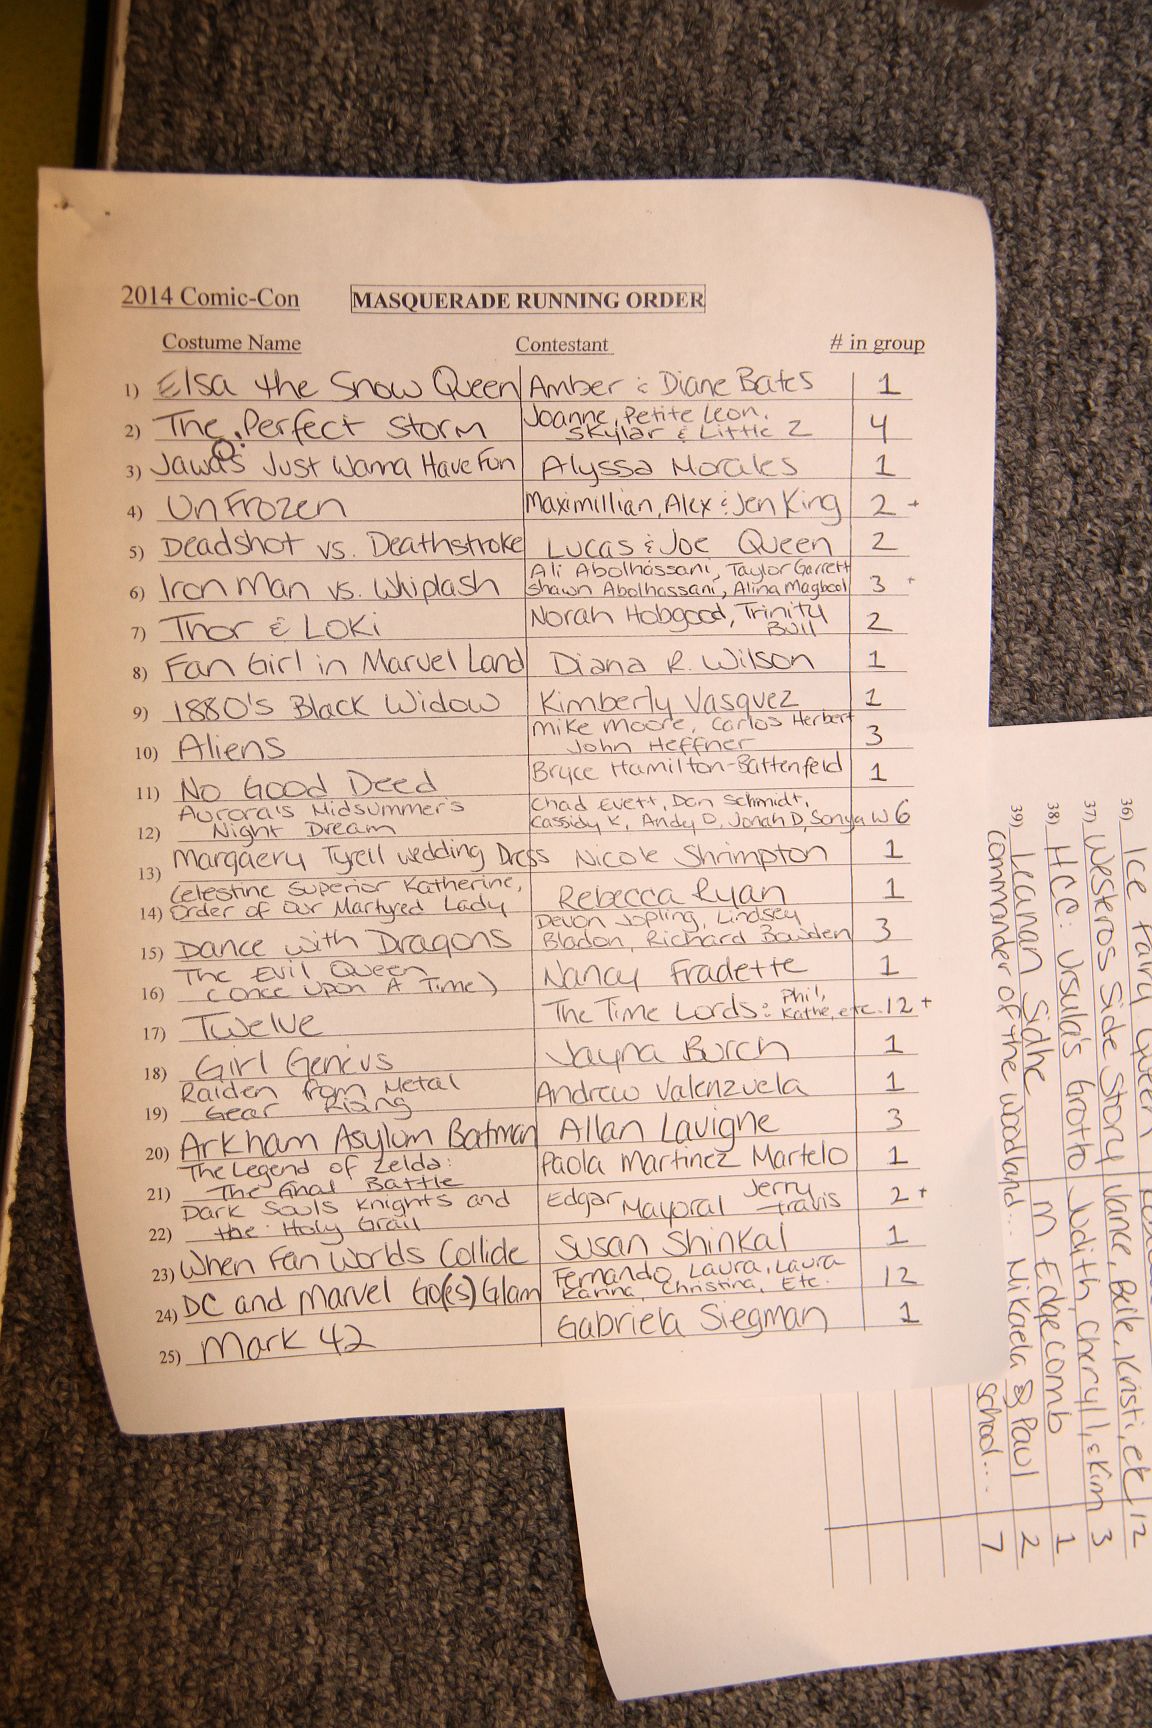 2014 Comic-Con MASQUERADE RUNNING ORDER
Costume Name Contestant # in group
1) Elsa the Snow Queen Amber & Diane Bates 1
2) The Perfect Storm Joanne, Petite Leon, Skylar & Little Z 4
3) Jawa's Just Wanna Have Fun Alyssa Morales 1
4) UnFrozen Maximillian, Alex & Jen King 2 +
5) Deadshot vs. Deathstroke Lucas & Joe Queen 2
6) Iron Man vs. Whiplash Ali Abolhassani, Taylor Garrett Shawn Abolhassani, Alina Maqbool 3 +
7) Thor & Loki Norah Hobgood, Trinity Bull 2
8) Fan Girl in Marvel Land Diana R. Wilson 1
9) 1880's Black Widow Kimberly Vasquez 1
10) Aliens Mike Moore, Carlos Herbert John Heffner 3
11) No Good Deed Bryce Hamilton-Battenfeld 1
12) Aurora's Midsummer's Night Dream Chad Evett, Don Schmidt, Cassidy K, Andy D, Jonah D, Sonya W 6
13) Margaery Tyrell wedding Dress Nicole Shrimpton 1
14) Celestine Superior Katherine, Order of Our Martyred Lady Rebecca Ryan 1
15) Dance with Dragons Devon Jopling, Lindsey Bladon, Richard Bowden 3
16) The Evil Queen (Once Upon A Time) Nancy Fradette 1
17) Twelve The Time Lords: Phil, Kathe, etc. 12 +
18) Girl Genius Jayna Burch 1
19) Raiden from Metal Gear Rizng Andrew Valenzuela 1
20) Arkham Asylum Batman Allan Lavigne 3
21) The Legend of Zelda: The Final Battle Paola Martinez Martelo 1
22) Dark Souls Knights and the Holy Grail Edgar Mayoral Jerry Travis 2 +
23) When Fan Worlds Collide Susan Shinkal 1
24) DC and Marvel Go(es) Glam Fernando, Laura, Laura Karina, Christina, Etc. 12
25) Mark 42 Gabriela Siegman 1
36) Ice Fairy Queen
37) Westeros Side Story Vance, Belle, Kristi, etc 12
38) HCC: Ursula's Grotto Judith, Cheryll, & Kim 3
39) Leanan Sidhe M Edgecomb 1
Commander of the woodland... Mikaela & Paul 2
school... 7